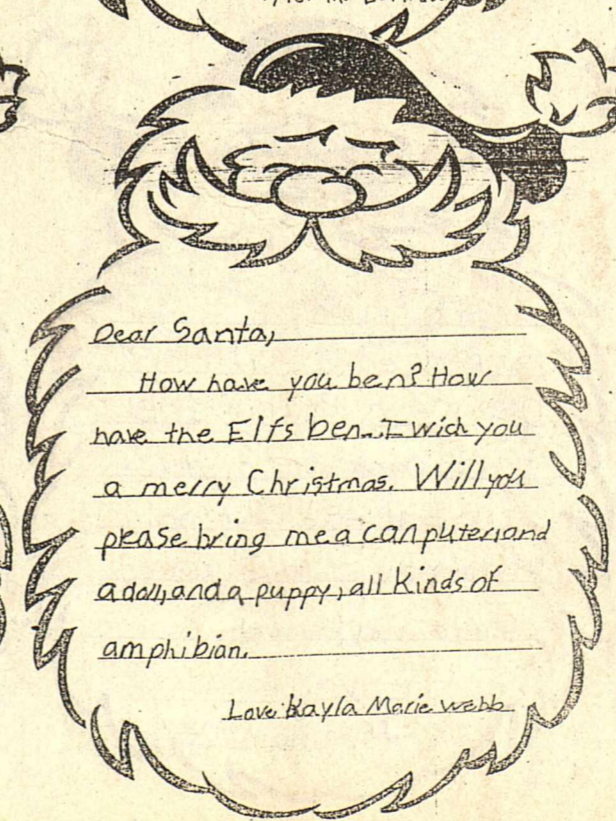 Dear Santa,
How have you ben? How
have the Elfs ben. I wich you
a merry Christmas. Will you
please bring me a canputer, and
a doll, and a puppy, all kinds of
amphibian.
Love Kayla Marie Webb